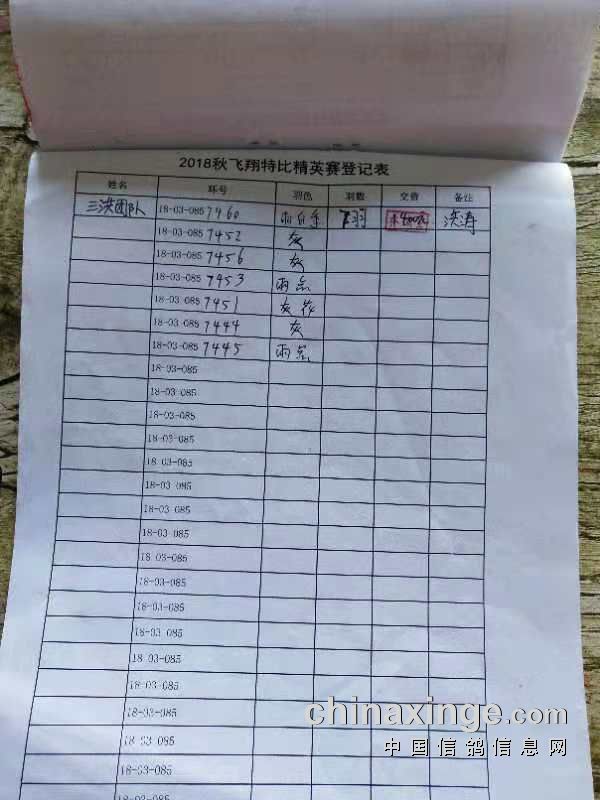 2018秋飞翔特比精英赛登记表
姓名 环号 羽色 羽数 交费 备注
三洪团队 18-03-085 7460 7羽 洪涛
18-03-085 7452 灰
18-03-085 7456 灰
18-03-085 7453 雨点
18-03-085 7451 灰花
18-03-085 7444 灰
18-03-085 7445 雨点
18-03-085
18-03-085
18-03-085
18-03-085
18-03-085
18-03-085
18-03-085
18-03-085
18-03-085
18-03-085
18-03-085
18-03-085
18-03-085
18-03-085
18-03-085
18-03-085
18-03-085
18-03-085
chinaxinge.com
中国信鸽信息网